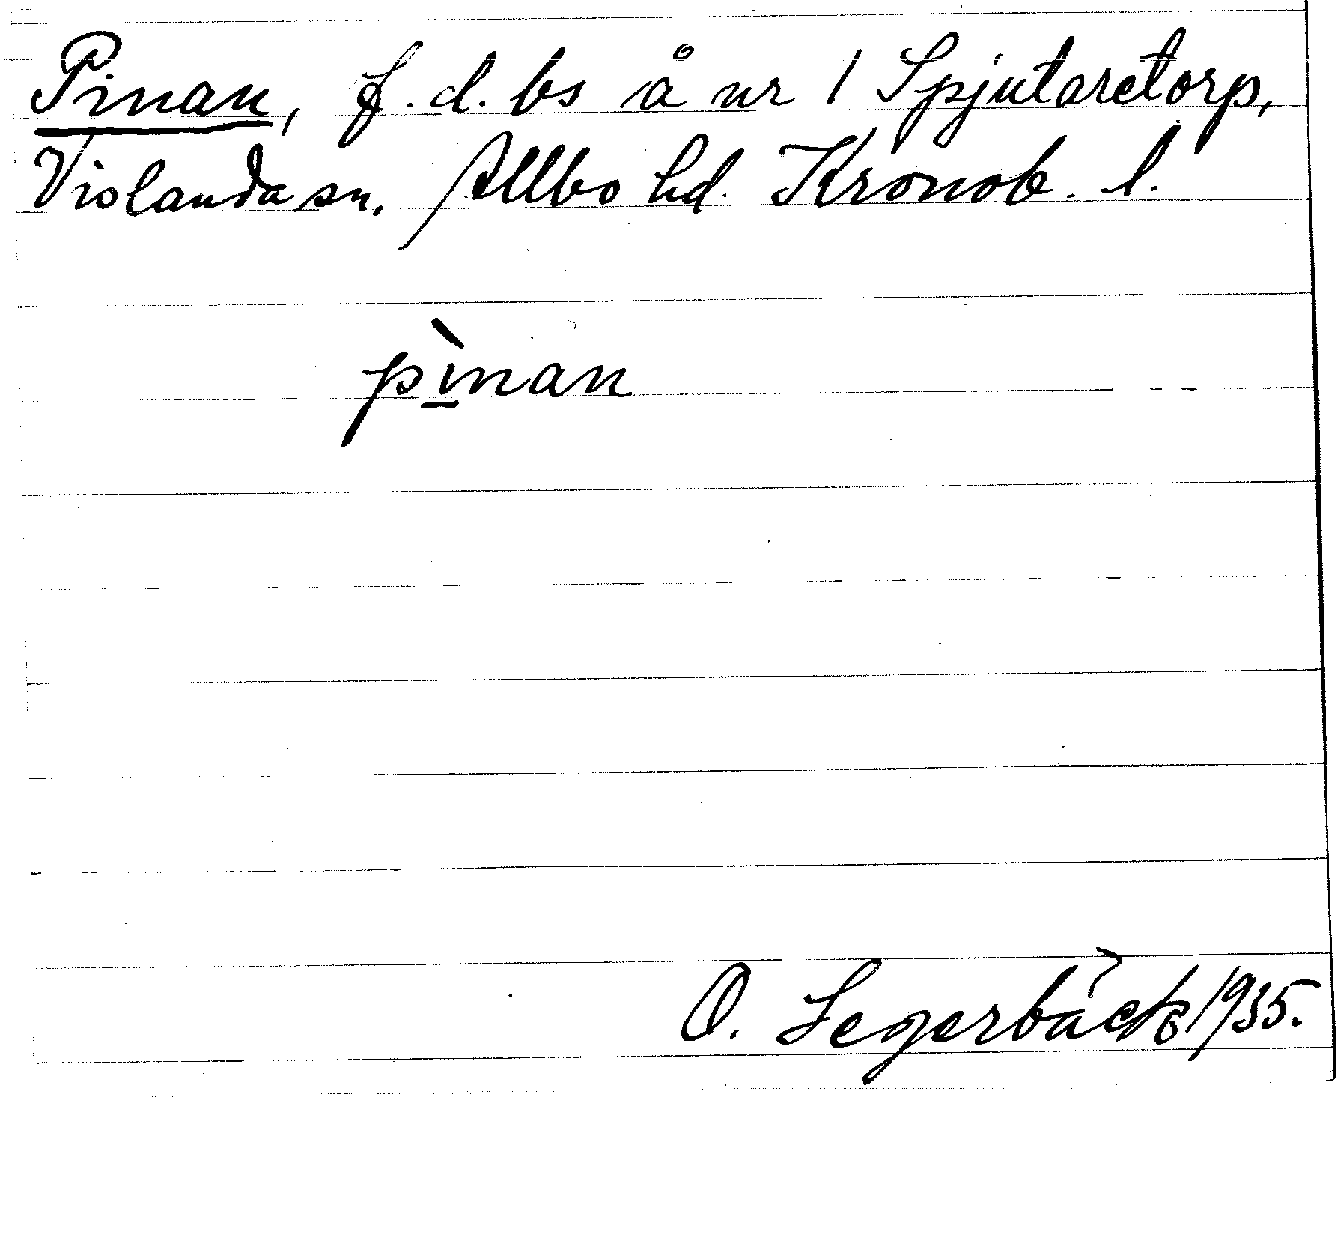 Pinan, f.d. bs å nr 1 Spjutaretorp,
Vislanda sn. Allbo hd. Kronob. l.
pìnan
O. Segerbäck 1935.